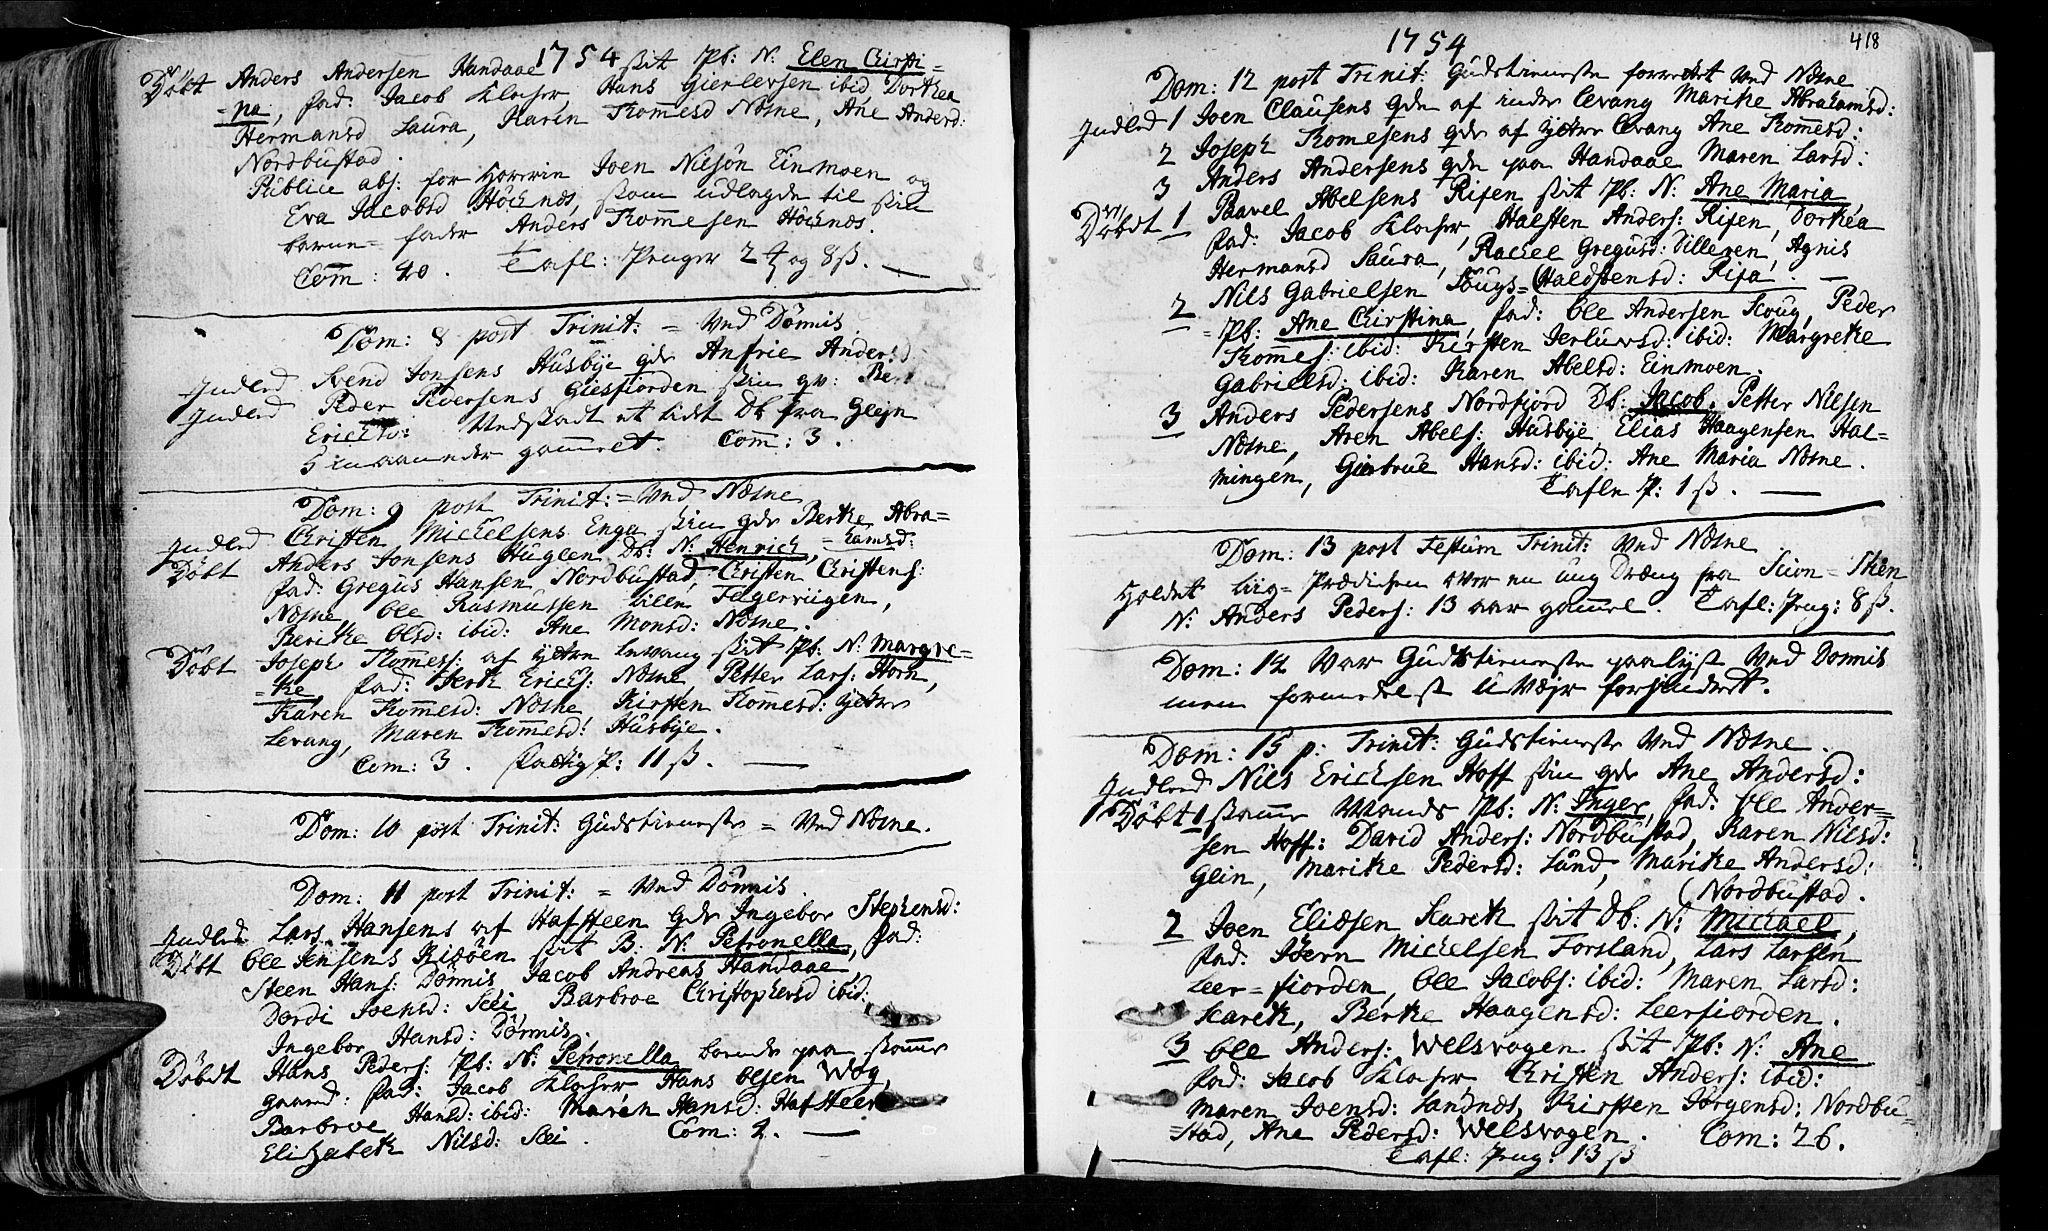 1754
Döbt Anders Andersen Handaae sit Pb: N: Elen Chirsti=
=na, fad: Jacob Klocher, Hans Gierlevsen ibid Dorthea
Hermansd Saura, Karen Thomesd Næsne, Ane Andersd:
Nordbustad.
Publice abs: for Horerie Joen Nilsön Einmoen og
Eva Jacobsd Höchnæs, som udlagde til sin
barne= fader Anders Thommesen Höchnæs.
Com: 40. Tafl: Penger 2 og 8 ß.
Dom: 8 post Trinit: = Ved Dönnis.
Indled Svend Jonsens Husbye qde Anfrie Andersd
Indled Peder Iversens Giesfiorden sin qv:
Ericksd: Vedstadt et lidet Db fra Glejn
5 maaneder gammelt. Com: 3.
Dom: 9 post Trinit: = Ved Næsne
Indled Christen Mickelsens Enge sin qde Berthe Abra=
=hamsd:
Döbt Anders Jonsens Huglen Db: N: Henrich,
fad: Gregus Hansen Nordbustad, Christen Christens:
Næsne, Ole Rasmussen lille Fagerviigen,
Berithe Olsd: ibid: Ane Monsd: Næsne.
Döbt Joseph Thomess: af Ytre Levang sit Pb: N: Margre=
=the, fad: Bent Ericks: Næsne, Petter Lars: Horn,
Karen Thommesd: Næsne Kirsten Thommesd: Ytre
Levang, Maren Thommesd: Husbye.
Com: 3. P: 11 ß.
Dom: 10 post Trinit: Gudstieneste = Ved Næsne.
Dom: 11 post Trinit: = Ved Dönnis.
Indled Lars Hansens af Hafsteen qde Ingebor Stephensd:
Döbt Ole Jensens Risöen sit B: N: Petronella, fad:
Steen Hans: Dönnis Jacob Andreas Handaae,
Dordi Joensd: Sei Barbroe Christophersd ibid:
Ingebor Hansd: Dönnis.
Döbdt Hans Peders: Pb: N: Petronella barnde paa samme
gaard: fad: Jacob Klocher Hans Olsen Wog,
Barbroe Hansd: ibid: Maren Hansd: Hafsteen
Elisabeth Nilsd: Sei. Com: 4.
1754
418
Dom: 12 post Trinit: Gudstieneste forrettet Ved Næsne
Indled 1 Joen Clausens qde af indre Levang Marithe Abrahamsd:
2 Joseph Thomesens qde af Ytre Levang Ane Thomesd:
3 Anders Andersens qde paa Handaae Maren Larsd:
Döbdt 1 Paavel Abelsens Risen sit Pb: N: Ane Maria
fad: Jacob Klocher, Halsten Anders: Risen, Dorthea
Hermansd Saura, Rachel Gregusd: Silleren, Agnis
(Haldstensd: Risa.
2 Nils Gabrielsen Skougs=
=Pb: Ane Chirstina, fad: Ole Andersen Scoug, Peder
Thomes: ibid: Kirsten Jerluvsd: ibid: Margrethe
Gabrielsd: ibid: Karen Abelsd: Einmoen.
3 Anders Pedersens Nordfiord Db: Jacob. Petter Nilsen
Næsne, Aren Abels: Husbye, Elias Haagensen Hal=
mingen, Giertrue Hansd: ibid: Ane Maria Næsne.
Tafle P: 1 ß.
Dom: 13 post Festum Trinit: Ved Næsne
Holdet Liig=Prædiken over en ung Dræng fra Scion=Then
N: Anders Peders: 13 aar gammel. Tafl: Peng: 8 ß.
Dom: 14 Var Gudstieneste paalyst Ved Dönnis
men formedelst uVejr forhindret.
Dom: 15 p: Trinit: Gudstieneste Ved Næsne.
Indled Nils Ericksen Hoff sin qde Ane Andersd:
Döbt 1 samme Mands Pb: N: Inger, fad: Ole Ander=
sen Hoff: David Anders: Nordbustad, Karen Nilsd:
Glein, Marithe Pedersd: Sund, Marithe Andersd:
(Nordbustad.
2 Joen Eliæsen Kareth sit Db: N: Michael,
fad: Jörn Mickelsen Forsland, Lars Larsen
Leer=fiorden, Ole Jacobs: ibid: Maren Larsd:
Kareth, Berthe Haagensd: Leerfiorden.
3 Ole Anders: Welsvogen sit Pb: N: Ane
fad: Jacob Klocher Christen Anders: ibid:
Maren Joensd: Sandnæs, Kirsten Jörgensd: Nordbu=
=stad, Ane Pedersd: Welsvogen. Com: 26.
Tafl: Peng: 13 ß